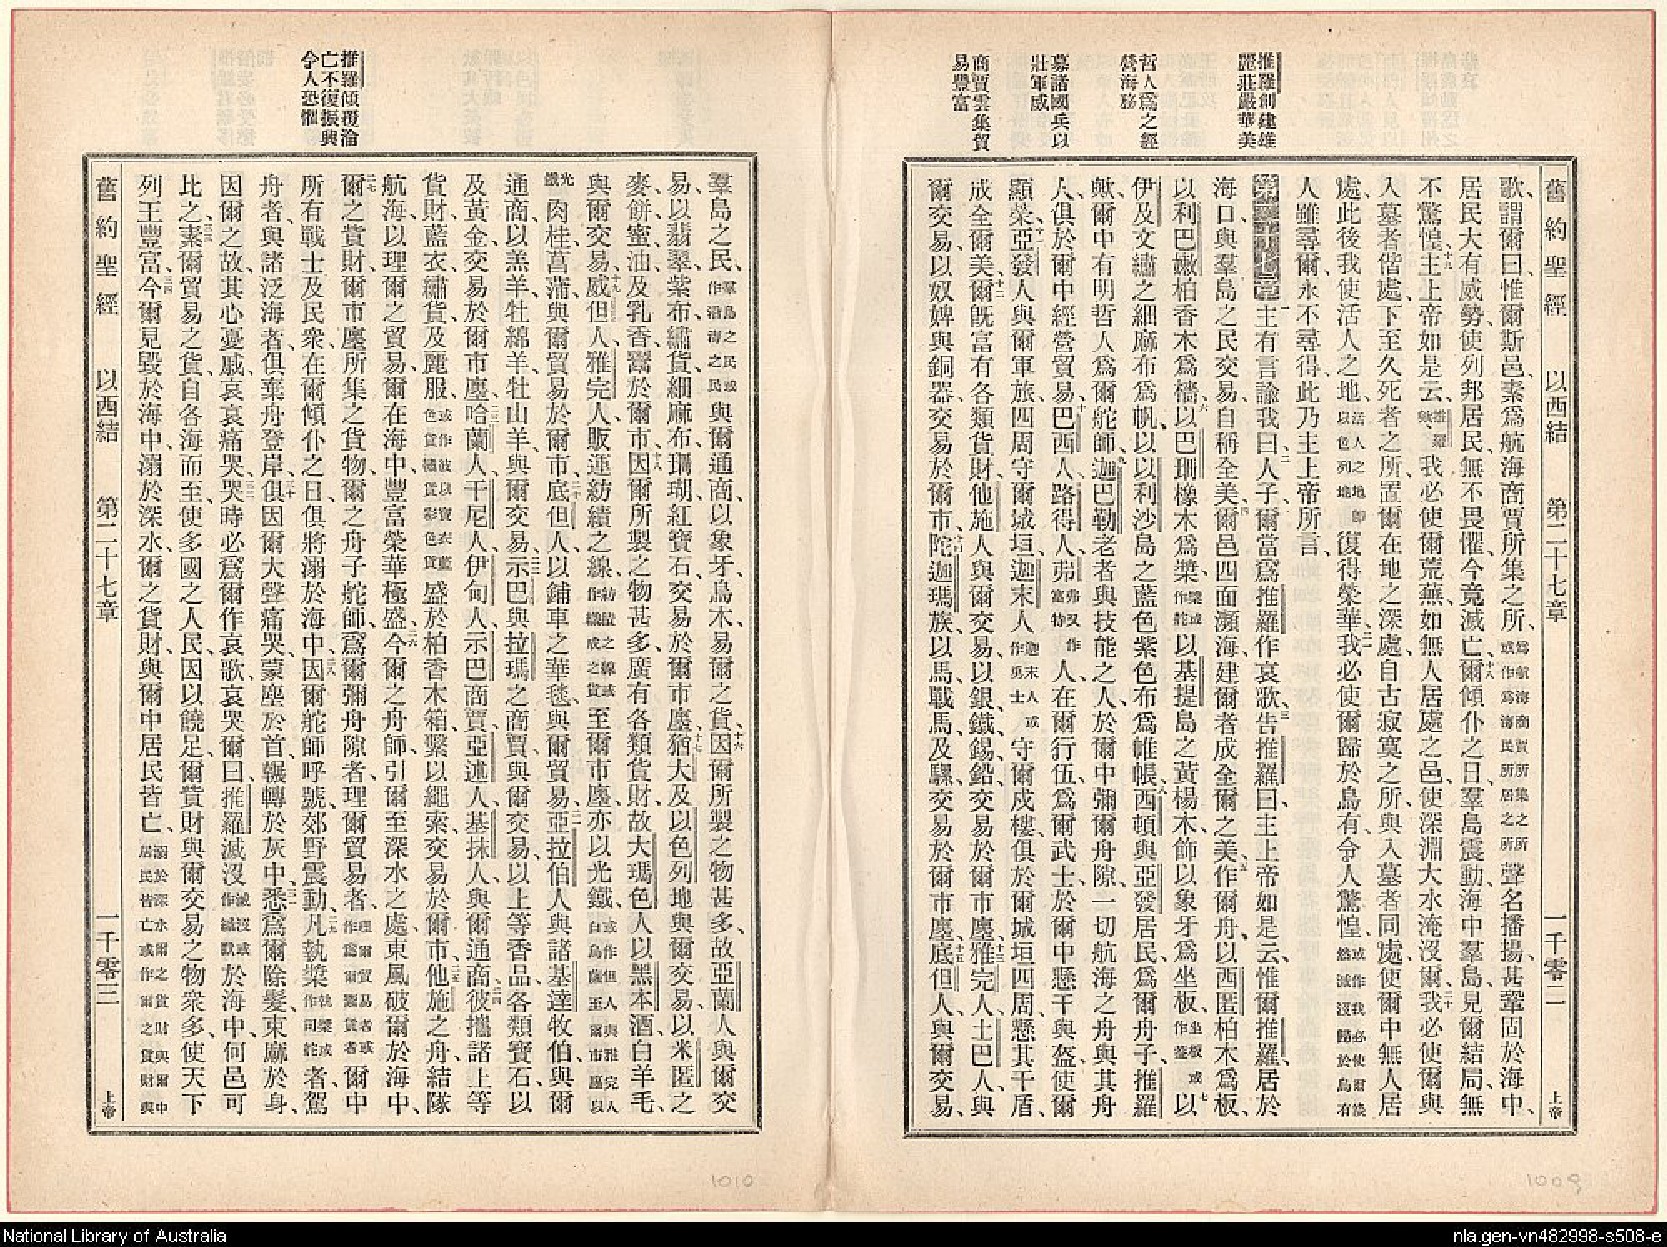 舊約聖經 以西結 第二十七章 一千零二 上帝
推羅創建雄
麗莊嚴華美
哲人爲之經
營海務
募諸國兵以
壯軍威
商賈雲集貿
易豐富
歌、謂爾曰、惟爾斯邑、素爲航海商賈所集之所、爲航海商賈所集之所或作爲海民所居之所聲名播揚、甚鞏固於海中、
居民大有威勢、使列邦居民、無不畏懼、今竟滅亡、十八爾傾仆之日、羣島震動、海中羣島、見爾結局、無
不驚惶、十九主上帝如是云、推羅歟我必使爾荒蕪、如無人居處之邑、使深淵大水淹沒爾、二十我必使爾與
入墓者偕處、下至久死者之所、置爾在地之深處、自古寂寞之所、與入墓者同處、使爾中無人居
處、此後我使活人之地、活人之地卽以色列地復得榮華、二一我必使爾歸於烏有、令人驚惶、或作我必使爾猝然滅沒歸於烏有
人雖尋爾、永不尋得、此乃主上帝所言、
第二十七章 一主有言諭我曰、二人子、爾當爲推羅作哀歌、三告推羅曰、主上帝如是云、惟爾推羅、居於
海口、與羣島之民交易、自稱全美、四爾邑四面瀕海、建爾者成全爾之美、五作爾舟、以西匿柏木爲板、
以利巴嫩柏香木爲檣、六以巴珊橡木爲槳、槳或作舵以基提島之黃楊木、飾以象牙爲坐板、坐板或作蓋七以
伊及文繡之細麻布爲帆、以以利沙島之藍色紫色布爲帷帳、八西頓與亞發居民、爲爾舟子、推羅
歟、爾中有明哲人爲爾舵師、九迦巴勒老者與技能之人、於爾中彌爾舟隙、一切航海之舟、與其舟
人、俱於爾中經營貿易、十巴西人、路得人、弗弗又作富特人、在爾行伍、爲爾武士、於爾中懸干與盔、使爾
顯榮、十一亞發人與爾軍旅、四周守爾城垣、迦末人迦末人或作勇士守爾戍樓、俱於爾城垣四周懸其干盾、
成全爾美、十二爾旣富有各類貨財、他施人與爾交易、以銀鐵錫鉛、交易於爾市廛、十三雅完人、土巴人、與
爾交易、以奴婢與銅器、交易於爾市、十四陀迦瑪族、以馬、戰馬、及騾、交易於爾市廛、十五底但人與爾交易、
舊約聖經 以西結 第二十七章 一千零三 上帝
推羅傾覆淪
亡不復振興
令人恐懼
羣島之民、羣島之民或作沿海之民與爾通商、以象牙、烏木、易爾之貨、十六因爾所製之物甚多、故亞蘭人與爾交
易、以翡翠、紫布、繡貨、細麻布、珊瑚、紅寶石、交易於爾市廛、十七猶大及以色列地與爾交易、以米匿之
麥、餅、蜜、油、及乳香、鬻於爾市、十八因爾所製之物甚多、廣有各類貨財、故大瑪色人以黑本酒、白羊毛、
與爾交易、十九威但人、雅完人、販運紡績之線、紡績之線或作織成之貨至爾市廛、亦以光鐵、或作但人與雅完人自烏薩至爾市廛以光鐵
肉桂、菖蒲、與爾貿易於爾市、二十底但人以鋪車之華毯、與爾貿易、二一亞拉伯人與諸基達牧伯、與爾
通商、以羔羊、牡綿羊、牡山羊、與爾交易、二二示巴與拉瑪之商賈與爾交易、以上等香品、各類寶石、以
及黃金、交易於爾市廛、二三哈蘭人、干尼人、伊甸人、示巴商賈、亞述人、基抹人、與爾通商、二四彼攜諸上等
貨財、藍衣、繡貨、及麗服、盛於柏香木箱、繫以繩索、交易於爾市、二五他施之舟、結隊
航海、以理爾之貿易、爾在海中、豐富榮華極盛、二六今爾之舟師、引爾至深水之處、東風破爾於海中、
二七爾之貲財、爾市廛所集之貨物、爾之舟子、舵師、爲爾彌舟隙者、理爾貿易者、爾中
所有戰士、及民衆、在爾傾仆之日、俱將溺於海中、二八因爾舵師呼號、郊野震動、二九凡執槳執槳或作司舵者、駕
舟者、與諸泛海者、俱棄舟登岸、三十俱因爾大聲痛哭、蒙塵於首、輾轉於灰中、三一悉爲爾除髮、束麻於身、
因爾之故、其心憂戚、哀哀痛哭、三二哭時必爲爾作哀歌、哀哭爾曰、推羅滅沒滅沒或作緘默於海中、何邑可
比之、三三素爾貿易之貨、自各海而至、使多國之人民、因以饒足、爾貲財與爾交易之物衆多、使天下
列王豐富、三四今爾見毀於海中、溺於深水、爾之貨財、與爾中居民皆亡、溺於深水爾之貨財與爾中居民皆亡或作爾之貨財與
1009
1010
National Library of Australia
nla.gen-vn482998-s508-e